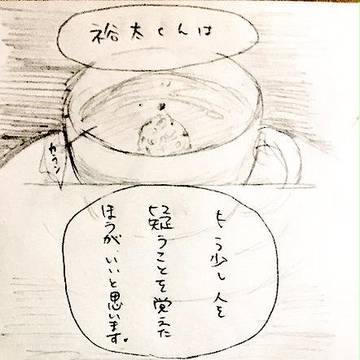 裕太くんは
カラン
もう少し人を
疑うことを覚えた
ほうが、いいと思います。